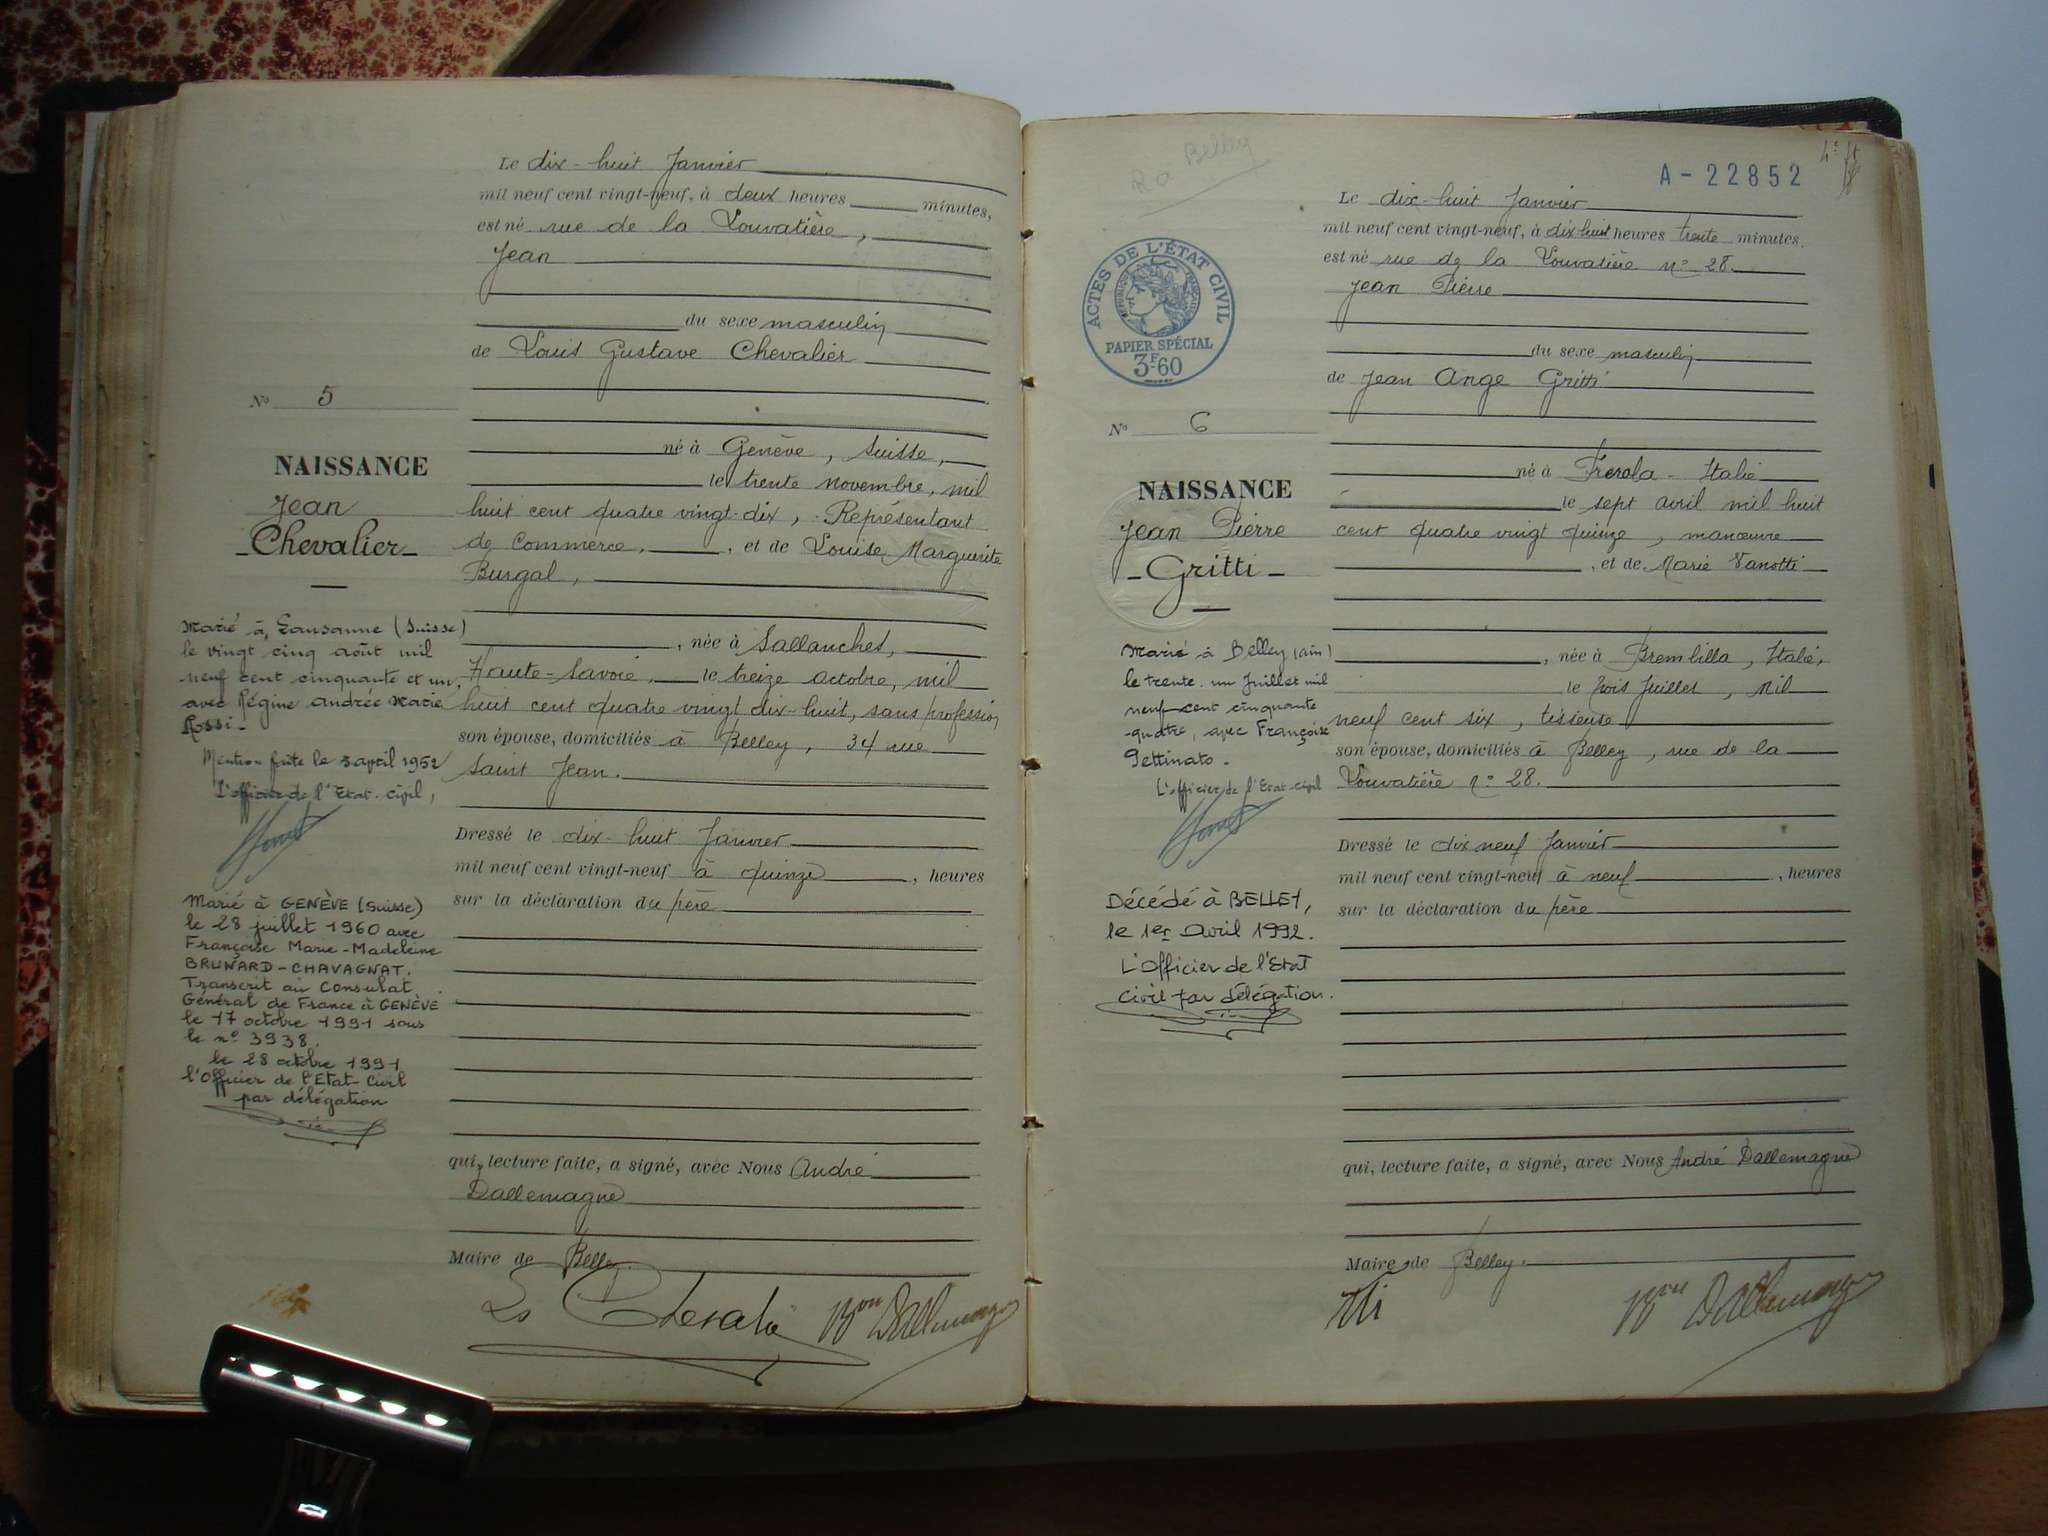 Le dix-huit Janvier
mil neuf cent vingt-neuf, à deux heures minutes,
est né rue de la Louvatière,
Jean
du sexe masculin
de Louis Gustave Chevalier
N° 5
né à Genève, Suisse,
NAISSANCE
Jean
Chevalier
le trente novembre, mil
huit cent quatre vingt-dix, Représentant
de Commerce, , et de Louise Marguerite
Burgal,
née à Sallanches,
Haute-Savoie, le treize octobre, mil
huit cent quatre vingt dix-huit, sans profession
son épouse, domiciliés à Belley, 34 rue
Saint Jean.
Marié à Lausanne (Suisse)
le vingt cinq août mil
neuf cent cinquante et un,
avec Régine Andrée Marie
Rossi-
Mention faite le 3 april 1952
L'officier de l'Etat-civil,
Dressé le dix-huit Janvier
mil neuf cent vingt-neuf à quinze , heures
sur la déclaration du père
Marié à GENÈVE (Suisse)
le 28 juillet 1960 avec
Françoise Marie-Madeleine
BRUNARD-CHAVAGNAT.
Transcrit au Consulat
Général de France à GENÈVE
le 17 octobre 1991 sous
le n° 3938.
le 28 octobre 1991
l'Officier de l'Etat-Civil
par délégation
qui, lecture faite, a signé, avec Nous André
Dallemagne
Maire de Belley
Ls Chevalier Bon Dallemagne
Ra Belley
A-22852
ACTES DE L'ÉTAT CIVIL
RÉPUBLIQUE FRANÇAISE
PAPIER SPÉCIAL
3F.60
Le dix-huit Janvier
mil neuf cent vingt-neuf, à dix-huit heures trente minutes,
est né rue de la Louvatière n° 28
Jean Pierre
du sexe masculin
de Jean Ange Gritti
N° 6
né à Frerola - Italie
NAISSANCE
Jean Pierre
Gritti
le sept avril mil huit
cent quatre vingt quinze, manœuvre
, et de Marie Vanotti
née à Brembilla, Italie,
le trois Juillet, mil
neuf cent six, tisseuse
son épouse, domiciliés à Belley, rue de la
Louvatière n° 28.
Marié à Belley (Ain)
le trente-un Juillet mil
neuf cent cinquante
-quatre, avec Françoise
Pettinato-
L'officier de l'Etat-civil
Dressé le dix neuf Janvier
mil neuf cent vingt-neuf à neuf , heures
sur la déclaration du père
Décédé à BELLEY,
le 1er Avril 1992.
L'Officier de l'Etat
Civil par délégation.
qui, lecture faite, a signé, avec Nous André Dallemagne
Maire de Belley.
Bon Dallemagne